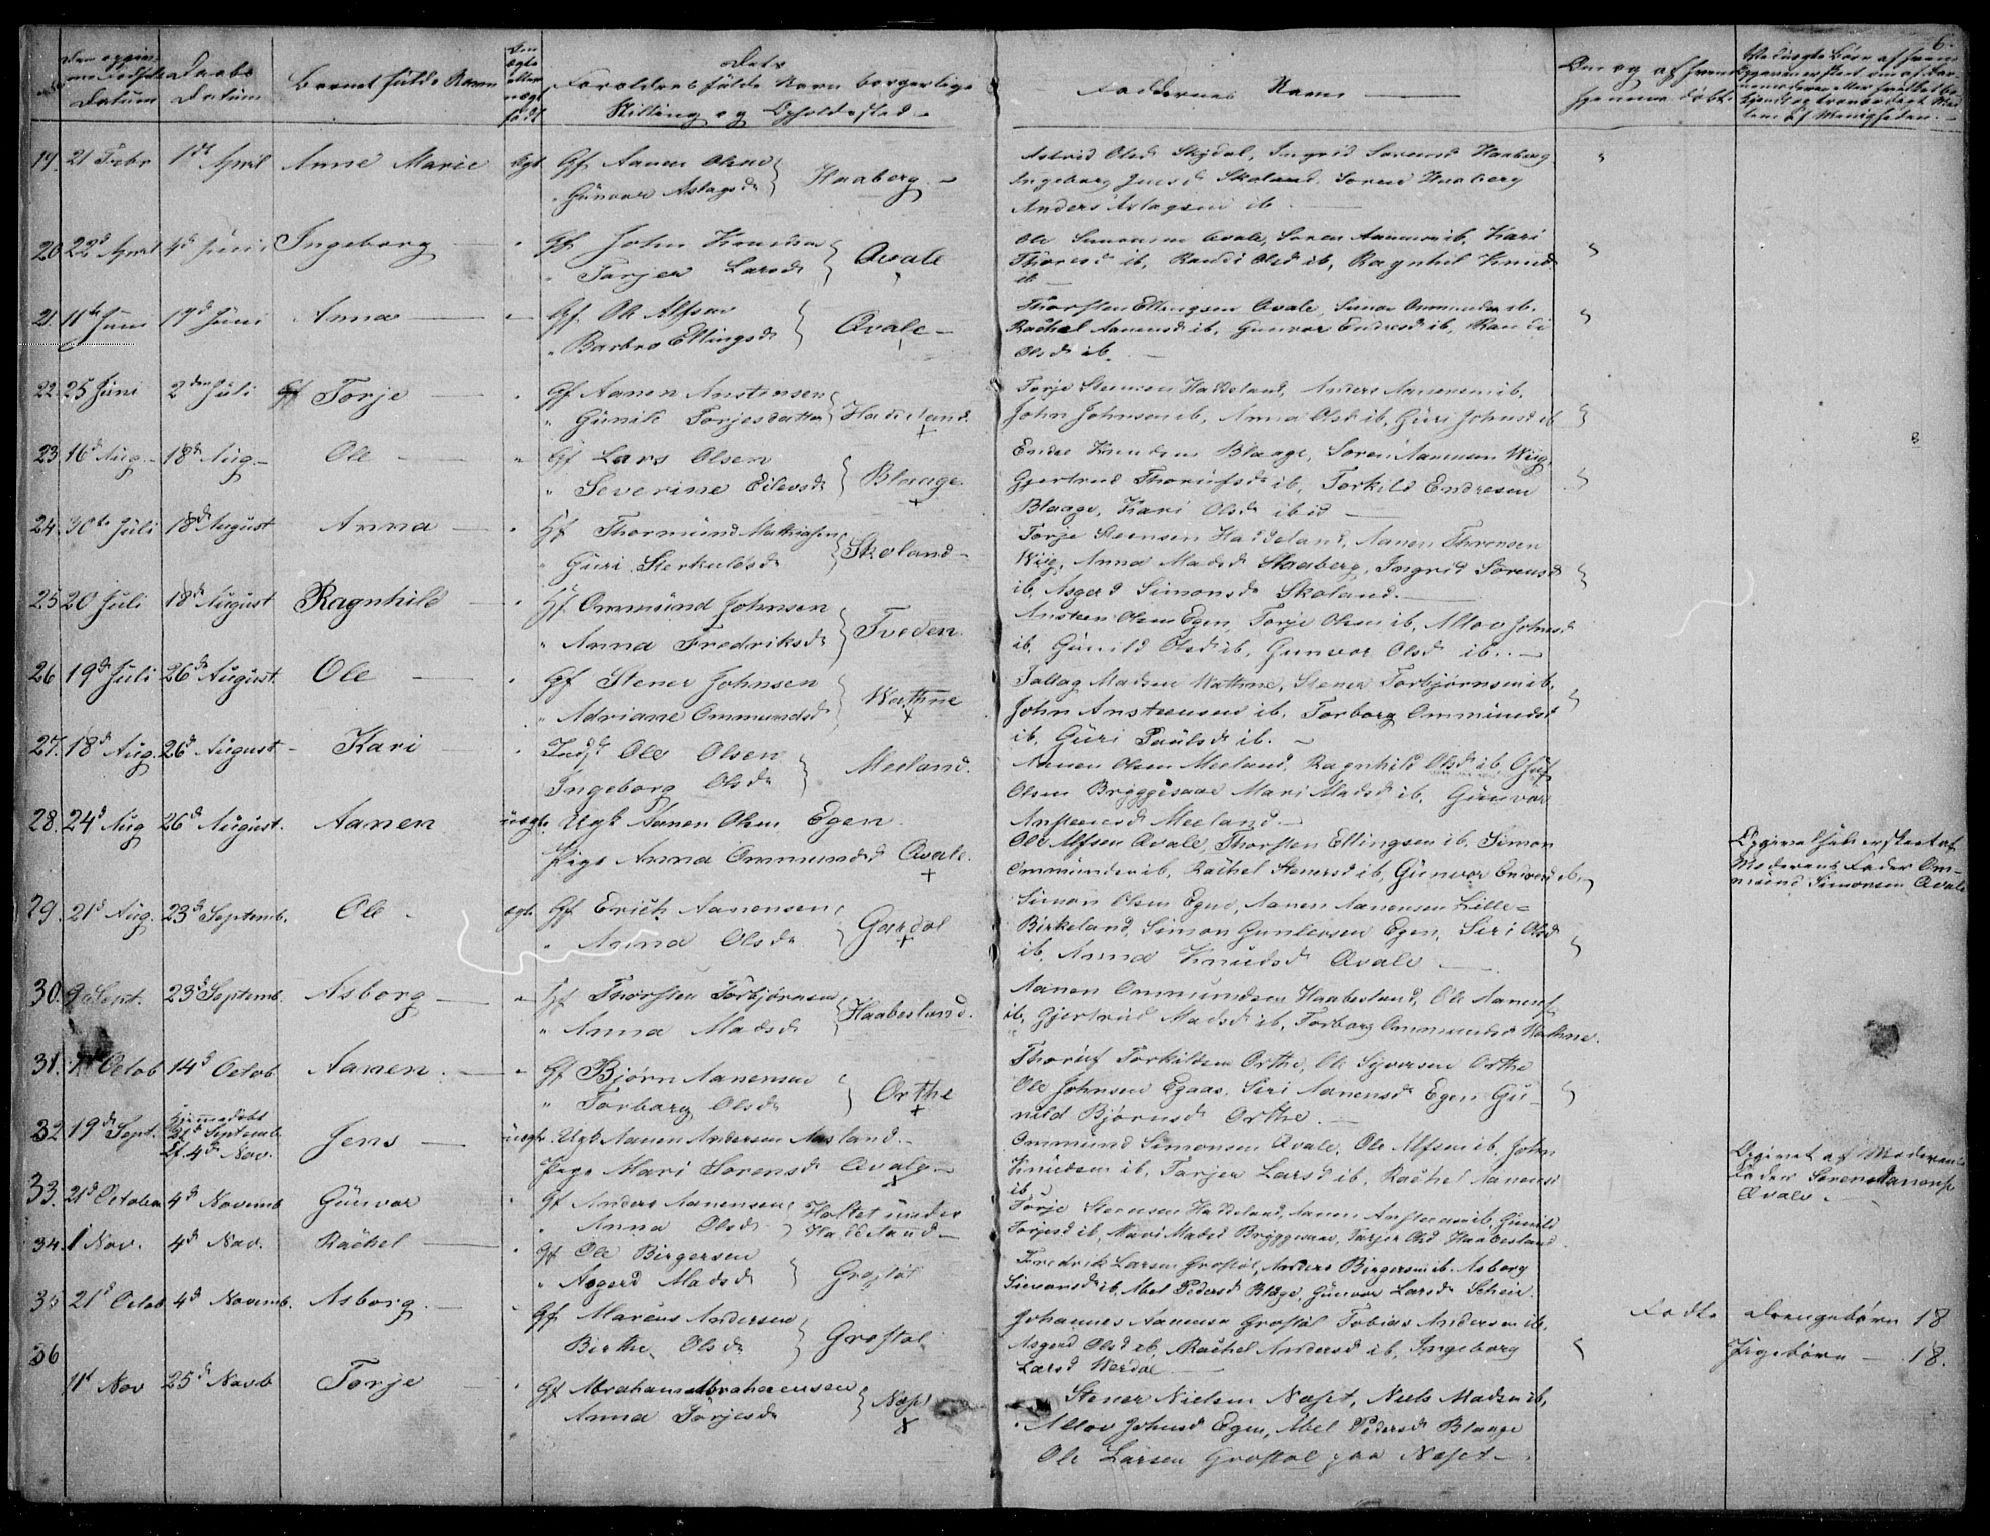 6.
Barnets fulde Navn
Forældres fulde Navn borgerlige
Stilling og Opholdssted
Faddernes Navne
19. 21 Febr 1de April Anne Marie ægt. Gf. Aanen Olsen
Gunvor Aslagsd. Haaberg
Astrid Olsd. Skjdal, Ingrid Sørensd. Haaberg
Ingeborg Jensd. Skoland, Søren Haaberg
Anders Aslagsen ib.
20 22d April 4d Juni Ingeborg Gf. John Knudsen
Tarjer Larsd. Qvale
Ole Simonsen Qvale, Søren Aanensen ib, Kari
Thoresd ib, Randi Olsd ib, Ragnhil Knud
ib
21. 11te Juni 17d Juni Anna Gf. Ole Alfsen
Barbro Ellingsd. Qvale
Thorsten Ellingsen Qvale, Simon Ommundsen ib.
Rachel Aanensd ib, Gunvor Endresd ib, Randi
Olsd ib.
22. 25 Juni 2den Juli Torje Gf Aanen Anstensen
Gunild Torjesdatter Haddeland
Torje Steensen Haddeland, Anders Aanensen ib,
John Johnsen ib, Anna Olsd ib, Guri Johnsd ib
23. 16d Aug. 18d Aug. Ole Gf Lars Olsen
Severine Eilevsd. Blaage
Endre Knudsen Blaage, Søren Aanensen Wiig,
Gjertrud Thorufsd ib, Torkild Endresen
Blaage, Kari Olsd ibid
24. 30te Juli 18d August Anna Gf. Thormund Mathiasen
Guri Sterkulesd. Skoland
Torje Steensen Haddeland, Aanen Thorensen
Wiig, Anna Madsd Skaaberg, Ingrid Sørensd
ib, Asgerd Simonsd Skoland.
25 20 Juli 18d August Ragnhild Gf. Ommund Johnsen
Anna Fredriksd. Tveden
Ansteen Olsen Egen, Torje Olsen ib, Allov Johnsd
ib, Gunild Olsd ib, Gunvor Olsd ib.
26. 19d Juli 26d August. Ole Gf Stener Johnsen
Adriane Ommundsd. Wathne
Tallag Madsen Wathne, Stener Torbjørnsen ib,
John Ansteensen ib. Torborg Ommundsd
ib, Guri Paulsd ib.
27. 18d Aug. 26d August Kari Inds. Ole Olsen
Ingeborg Olsd. Meeland.
Aanen Olsen Meeland, Ragnhild Olsd ib,
Olsen Bryggesaae Mari Madsd ib, Gunvor
Ansteensd Meeland.
28. 24d Aug 26d August. Aanen uægt. Ugk Aanen Olsen Egen
Pige Anna Ommundsd Qvale.
Ole Alfsen Qvale, Thorsten Ellingsen ib, Simon
Ommundsen ib, Rachel Stenersd ib, Gunvor Endresd ib.
Opgivelsen er skeet af
Moderens Fader Om-
mund Simonsen Qvale
29. 21d Aug. 23d Septemb. Ole ægt. Gf Erich Aanensen
Anna Olsd. Gardøl
Simon Olsen Egen, Aanen Aanensen Lille-
Birkeland, Simon Gunleivsen Egen, Siri Olsd
ib. Anna Knudsd Qvale
30. 9 Sept. 23d Septemb. Asborg Gf. Thorsten Torbjørnsen
Anna Madsd. Haabesland.
Aanen Ommundsen Haabesland, Ole Aanens.
ib, Gjertrud Madsd ib, Torborg Ommundsd Wathne.
31. 1 Octob 14d Octob Aanen. Gf Bjørn Aanensen
Torborg Olsd. Orthe
Thoruf Torkildsen Orthe, Ole Syversen Orthe
Ole Johnsen Egaas, Siri Aanensd Egen Gu-
nild Bjørnsd Orthe.
32. 19d Sept. hjemmedøbt
Septemb.
4d Nov. Jens uægt. Ugk Aanen Andersen Aasland
Pige Mari Sørensd Qvale
Ommund Simonsen Qvale, Ole Alfsen ib, John
Knudsen ib, Tarjer Larsd ib, Rachel Aanensd
ib
Opgivet af Moderens
Fader Søren Aanens.
Qvale.
33. 21d October 4d Novemb Gunvor Gf Anders Aanensen
Anna Olsd. Holtet under
Haddeland
Torje Steensen Haddeland, Aanen Ansteensen ib, Gunild
Torjesd ib, Mari Madsd Bryggesaae, Tarjer Olsd Haabesland
34. 1 Nov. 4d Nov. Rachel Gf Ole Birgersen
Asgerd Madsd. Grostøl
Fredrik Larsen Grostøl, Anders Birgersen ib, Asborg
Simonsd ib, Abel Pedersd Blage, Gunvor Larsd Scheie
35 21d Octob 4d Novemb. Asborg. Gf. Marcus Andersen
Birthe Olsd. Grostøl
Johannes Aanensen Grostøl Tobias Andersen ib,
Asgerd Olsd ib, Rachel Andersd ib, Ingeborg
Larsd Werdal
Fødte Drengebørn 18
Pigebørn 18.
36
11d Nov 25d Novb Torje Gf Abraham Abrahamsen
Anna Torjesd. Næset
Stener Nielsen Næset, Niels Madsen ib,
Allov Johnsd Egen, Abel Pedersd Blaage
Ole Larsen Grostøl paa Næset